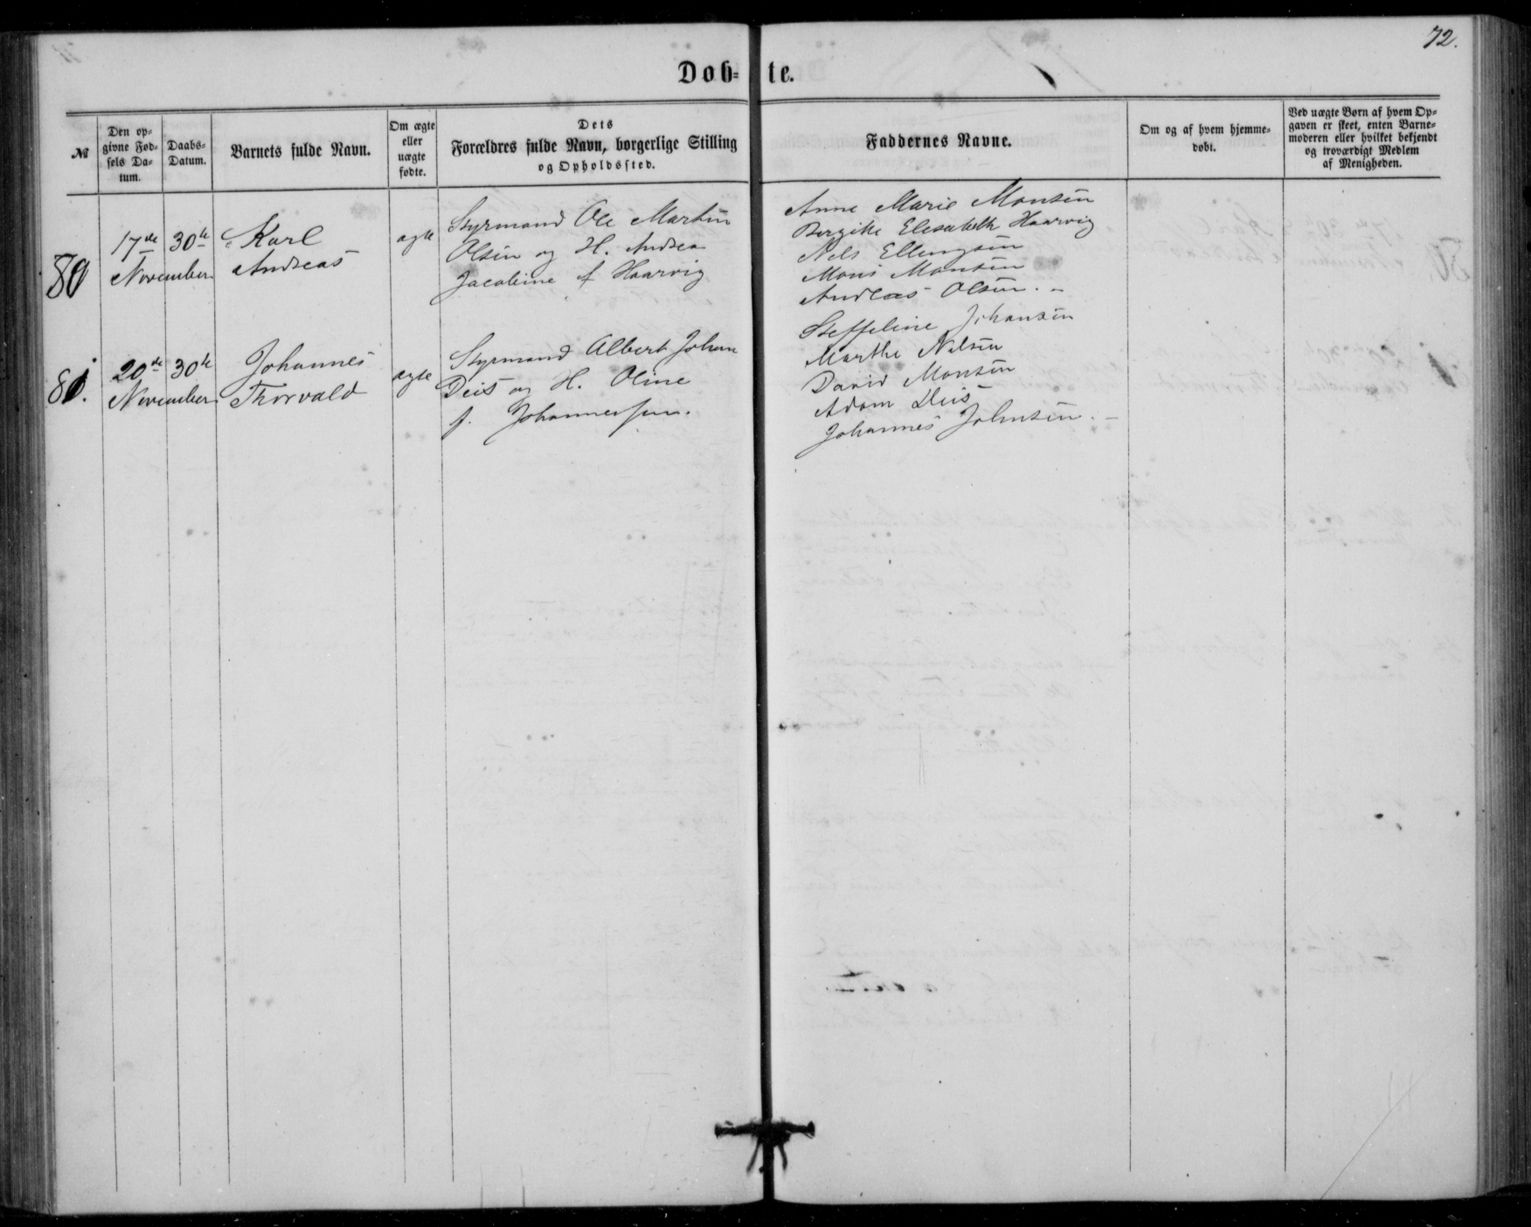 72.
Døb=te.
№
Den op=
givne Fød=
sels Da=
tum.
Daabs=
Datum.
Barnets fulde Navn.
Om ægte
eller
uægte
fødte.
Dets
Forældres fulde Navn, borgerlige Stilling
og Opholdssted.
Faddernes Navne.
Om og af hvem hjemme=
døbt.
Ved uægte Børn af hvem Op=
gaven er skeet, enten Barne=
moderen eller hvilket bekjendt
og troværdigt Medlem
af Menigheden.
80
17de
November
30te
Karl
Andreas
ægte
Styrmand Ole Martin
Olsen og H. Andrea
Jacobine f Haarvig
Anne Marie Monsen
Bergithe Elisabeth Haarvig
Nels Ellingsen
Mons Monsen
Andreas Olsen. –
81.
20de
November
30te
Johannes
Thorvald
ægte
Styrmand Albert Johan
Deis og H. Oline
f. Johannessen.
Steffeline Johansen
Marthe Nilsen
David Monsen
Adam Deis
Johannes Johnsen. –